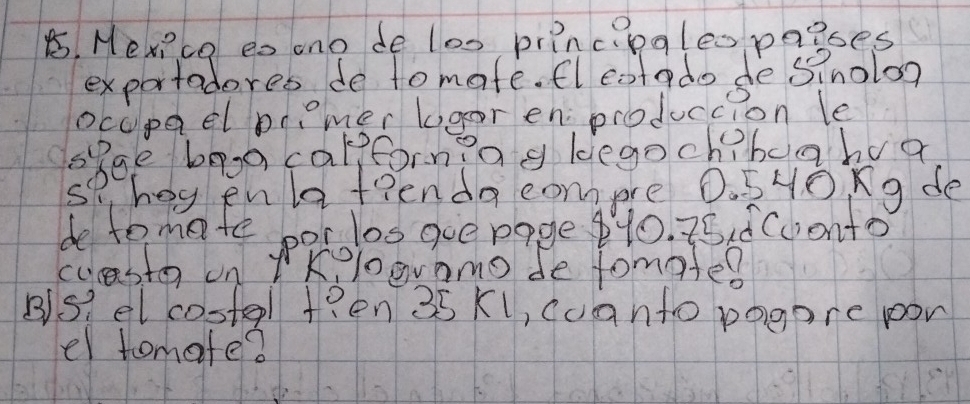 15. Mexico es uno de los principales paises
exportadores de tomate. El estado de Sinaloa
ocupa el primer lugar en produccion le
sige baga california y luego chibua hua
si hoy en la tienda compre 0.540 Kg de
de tomate por los que page $40.75, ¿Cuanto
cuesta un 1 Kilogramo de tomate?
B) Si el costal tien 35 Kl, cuanto pagare por
el tomate?